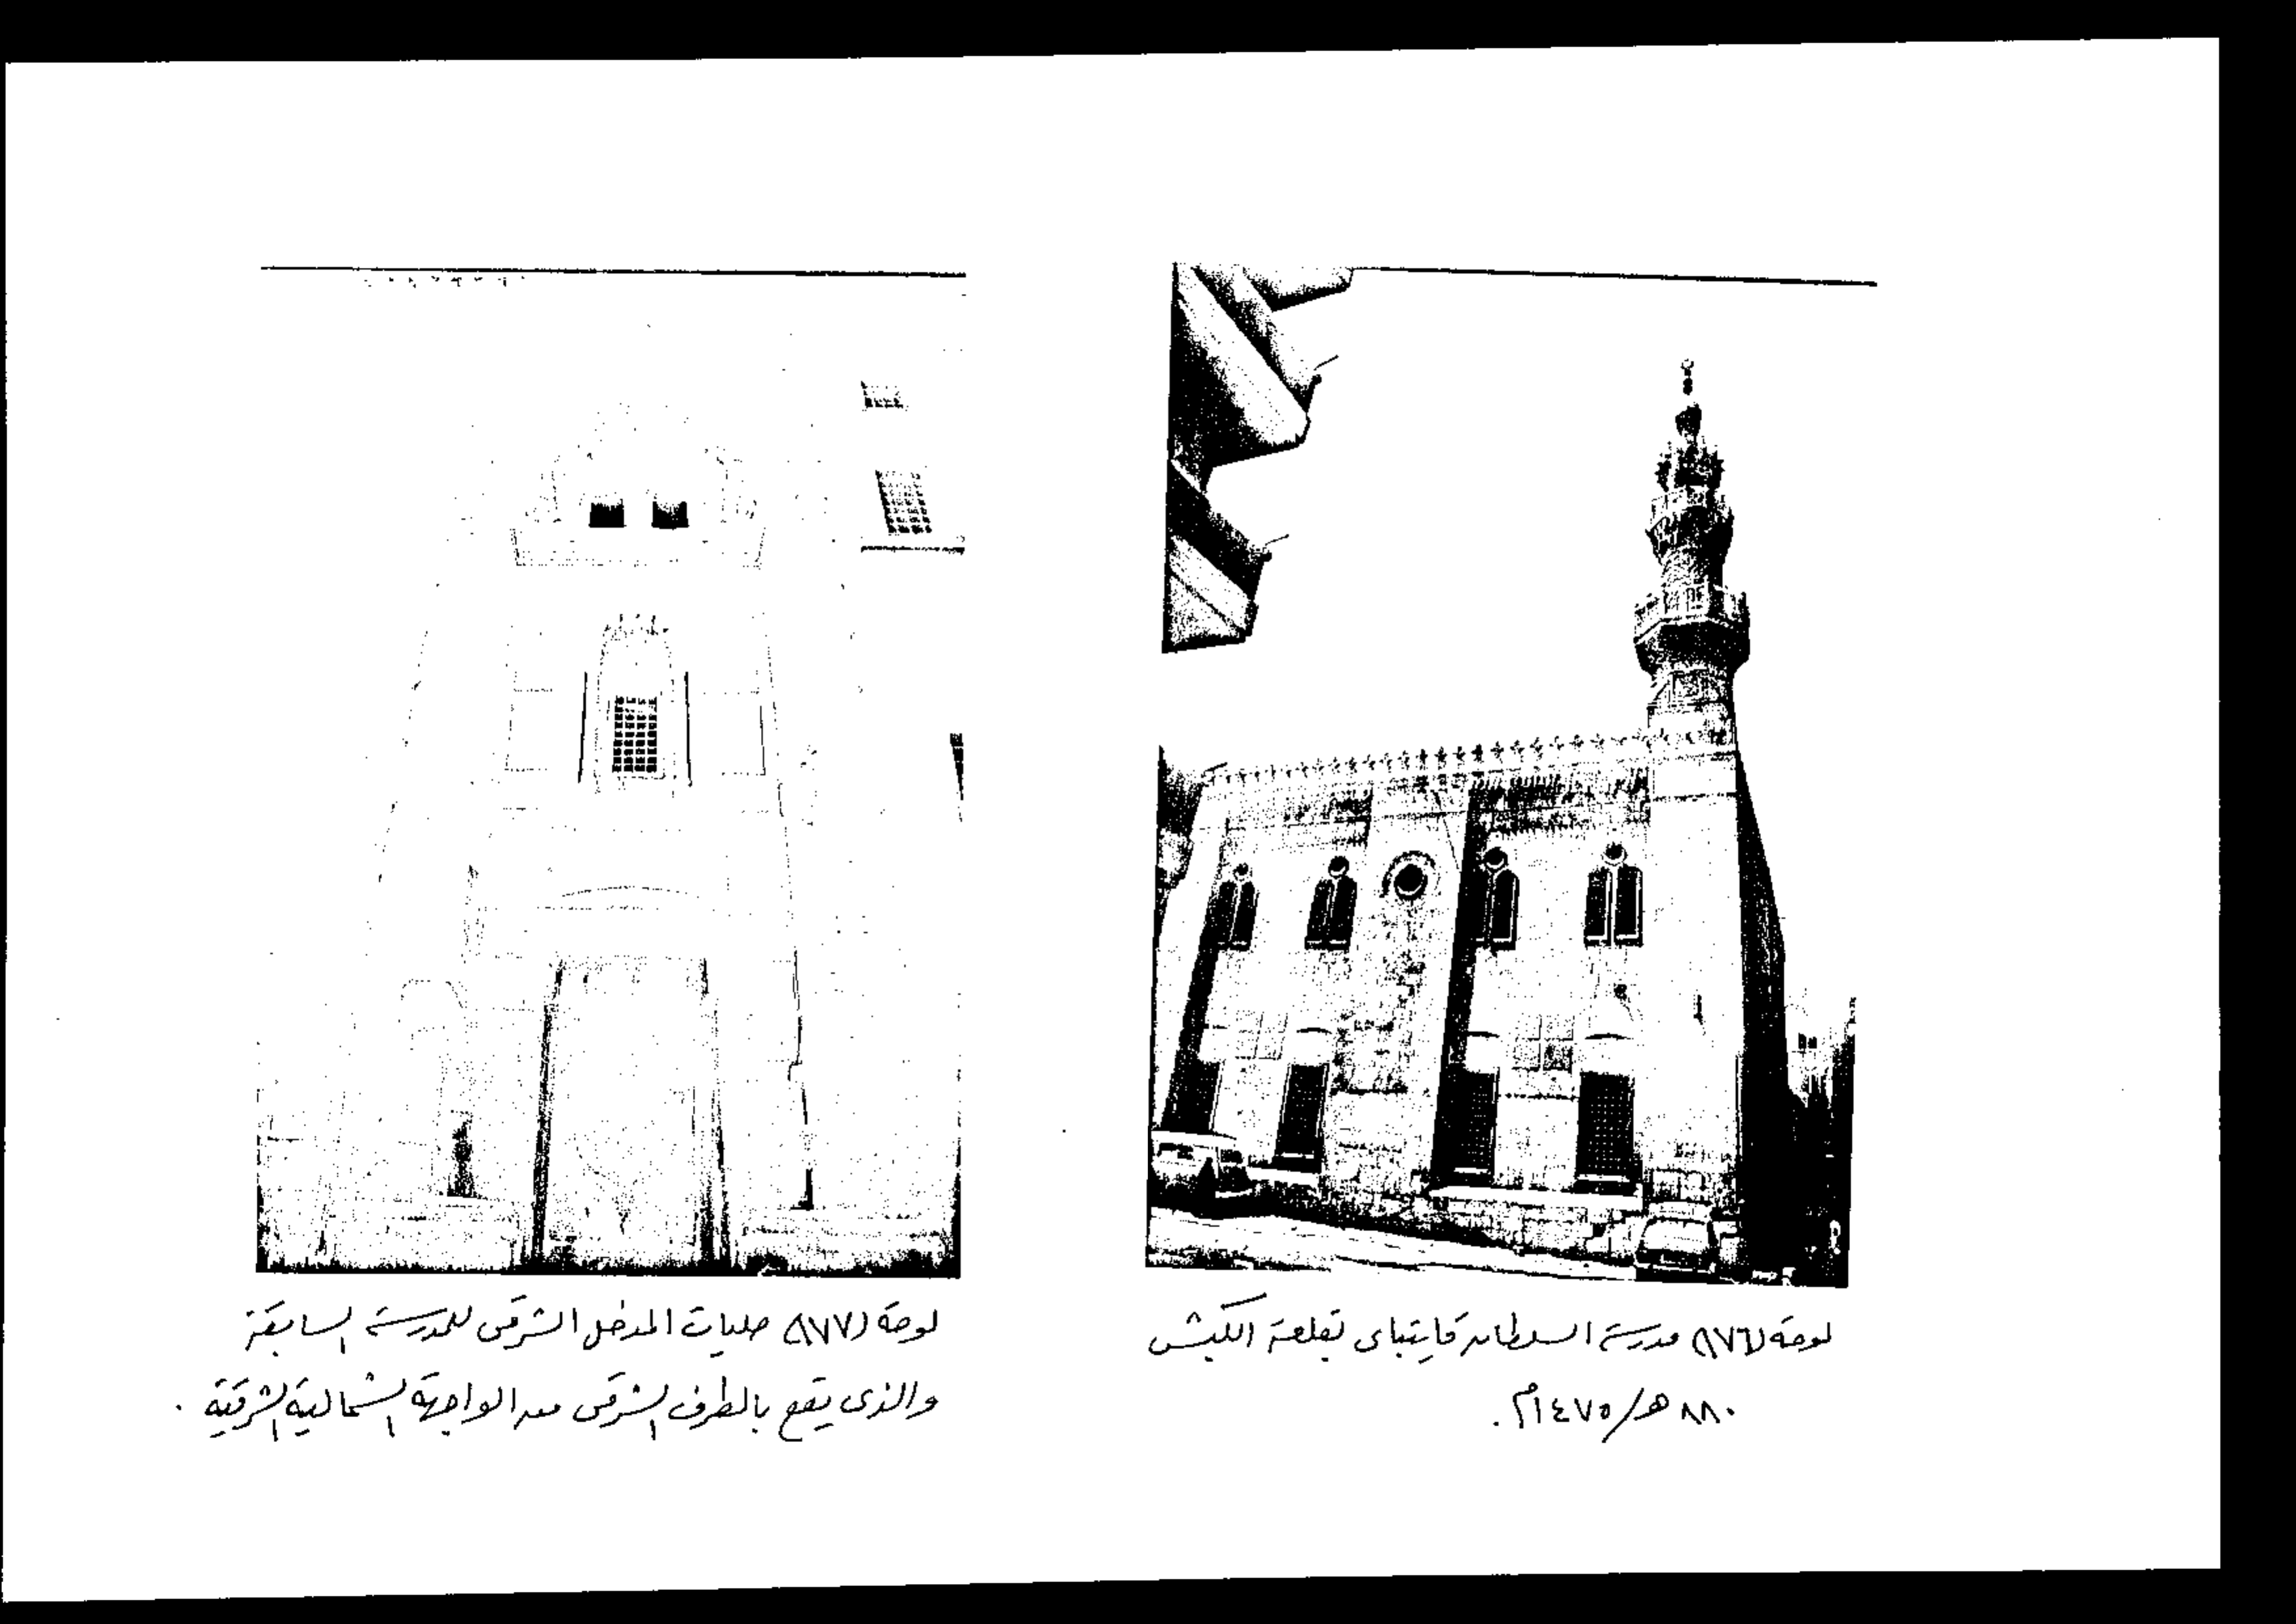 لوحة (١٧٦) مدرسة السلطان قايتباى بقلعة الكبش
٨٨٠ هـ/١٤٧٥م.
لوحة (١٧٧) حليات المدخل الشرقى للمدرسة السابقة
والذى يقع بالطرف الشرقى من الواجهة الشمالية الشرقية .